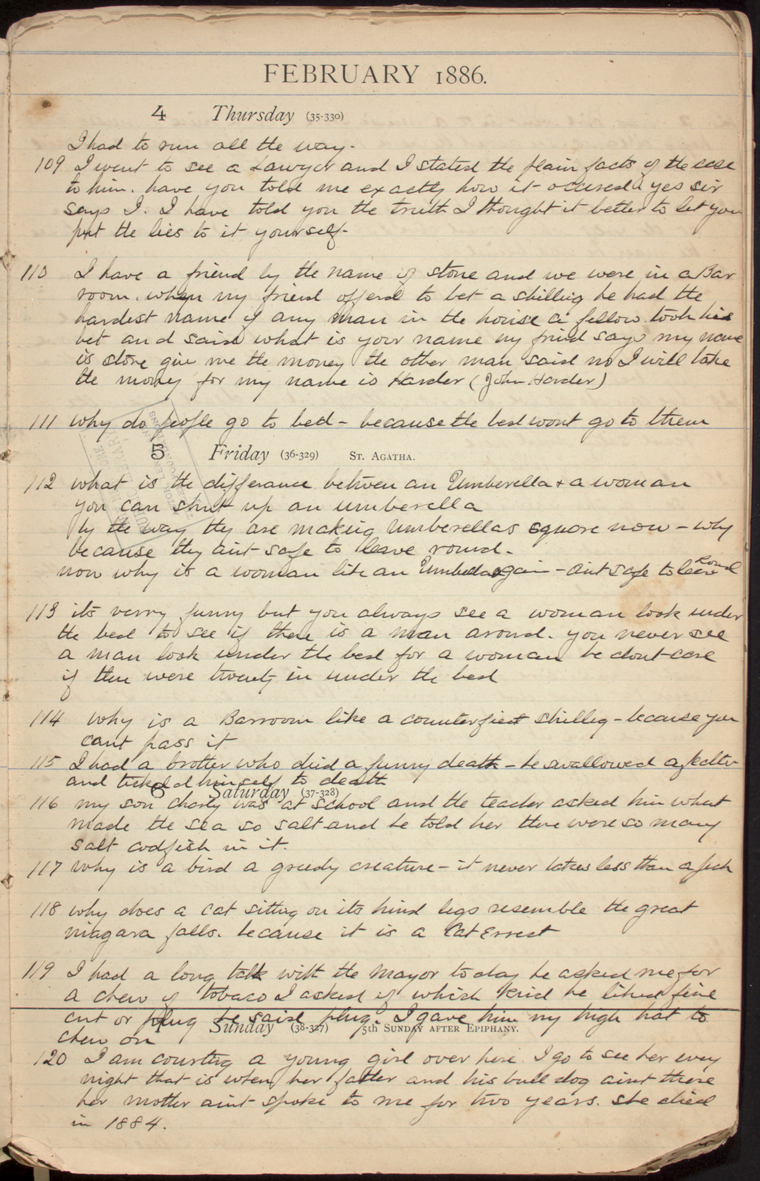 FEBRUARY 1886.
4 Thursday (35-330)
I had to run all the way.
109 I went to see a Lawyer and I stated the plain facts of the case
to him. have you told me exactly how it occured yes sir
says I. I have told you the truth I thought it better to let you
put the lies to it yourself.
110 I have a friend by the name of stone and we were in a Bar
room. when my friend offered to bet a shilling he had the
hardest name of any man in the house a fellow took his
bet and said what is your name my friend says my name
is stone give me the money the other man said no I will take
the money for my name is Harder (John Harder)
111 why do people go to bed - because the bed wont go to them
5 Friday (36-329) St. Agatha.
112 what is the difference between an Umberella + a woman
you can shut up an umberella
by the way they are making Umberellas square now - why
because they aint safe to leave round.
now why is a woman like an again - aint safe to leave Round
113 its verry funny but you always see a woman look under
the bed to see if there is a man around. you never see
a man look under the bed for a woman he dont care
if there were twenty in under the bed
114 why is a Barroom like a counterfiest shilling - because you
cant pass it
115 I had a brother who died a funny death - he swallowed a
and tickeled himself to death
6 Saturday (37-328)
116 my son charly was at school and the teacher asked him what
made the sea so salt and he told her there were so many
salt codfish in it.
117 why is a bird a greedy creature - it never takes less than a peck
118 why does a cat sitting on its hind legs resemble the great
niagara falls. because it is a Cat Errect
119 I had a long talk with the Mayor to day he asked me for
a chew of tobaco I asked of which kind he liked fine
cut or plug he said plug. I gave him my high hat to
chew on
Sunday (38-327) 5th Sunday after Epiphany.
120 I am courting a young girl over here I go to see her every
night that is when her father and his bull dog aint there
her mother aint spoke to me for two years. she died
in 1884.